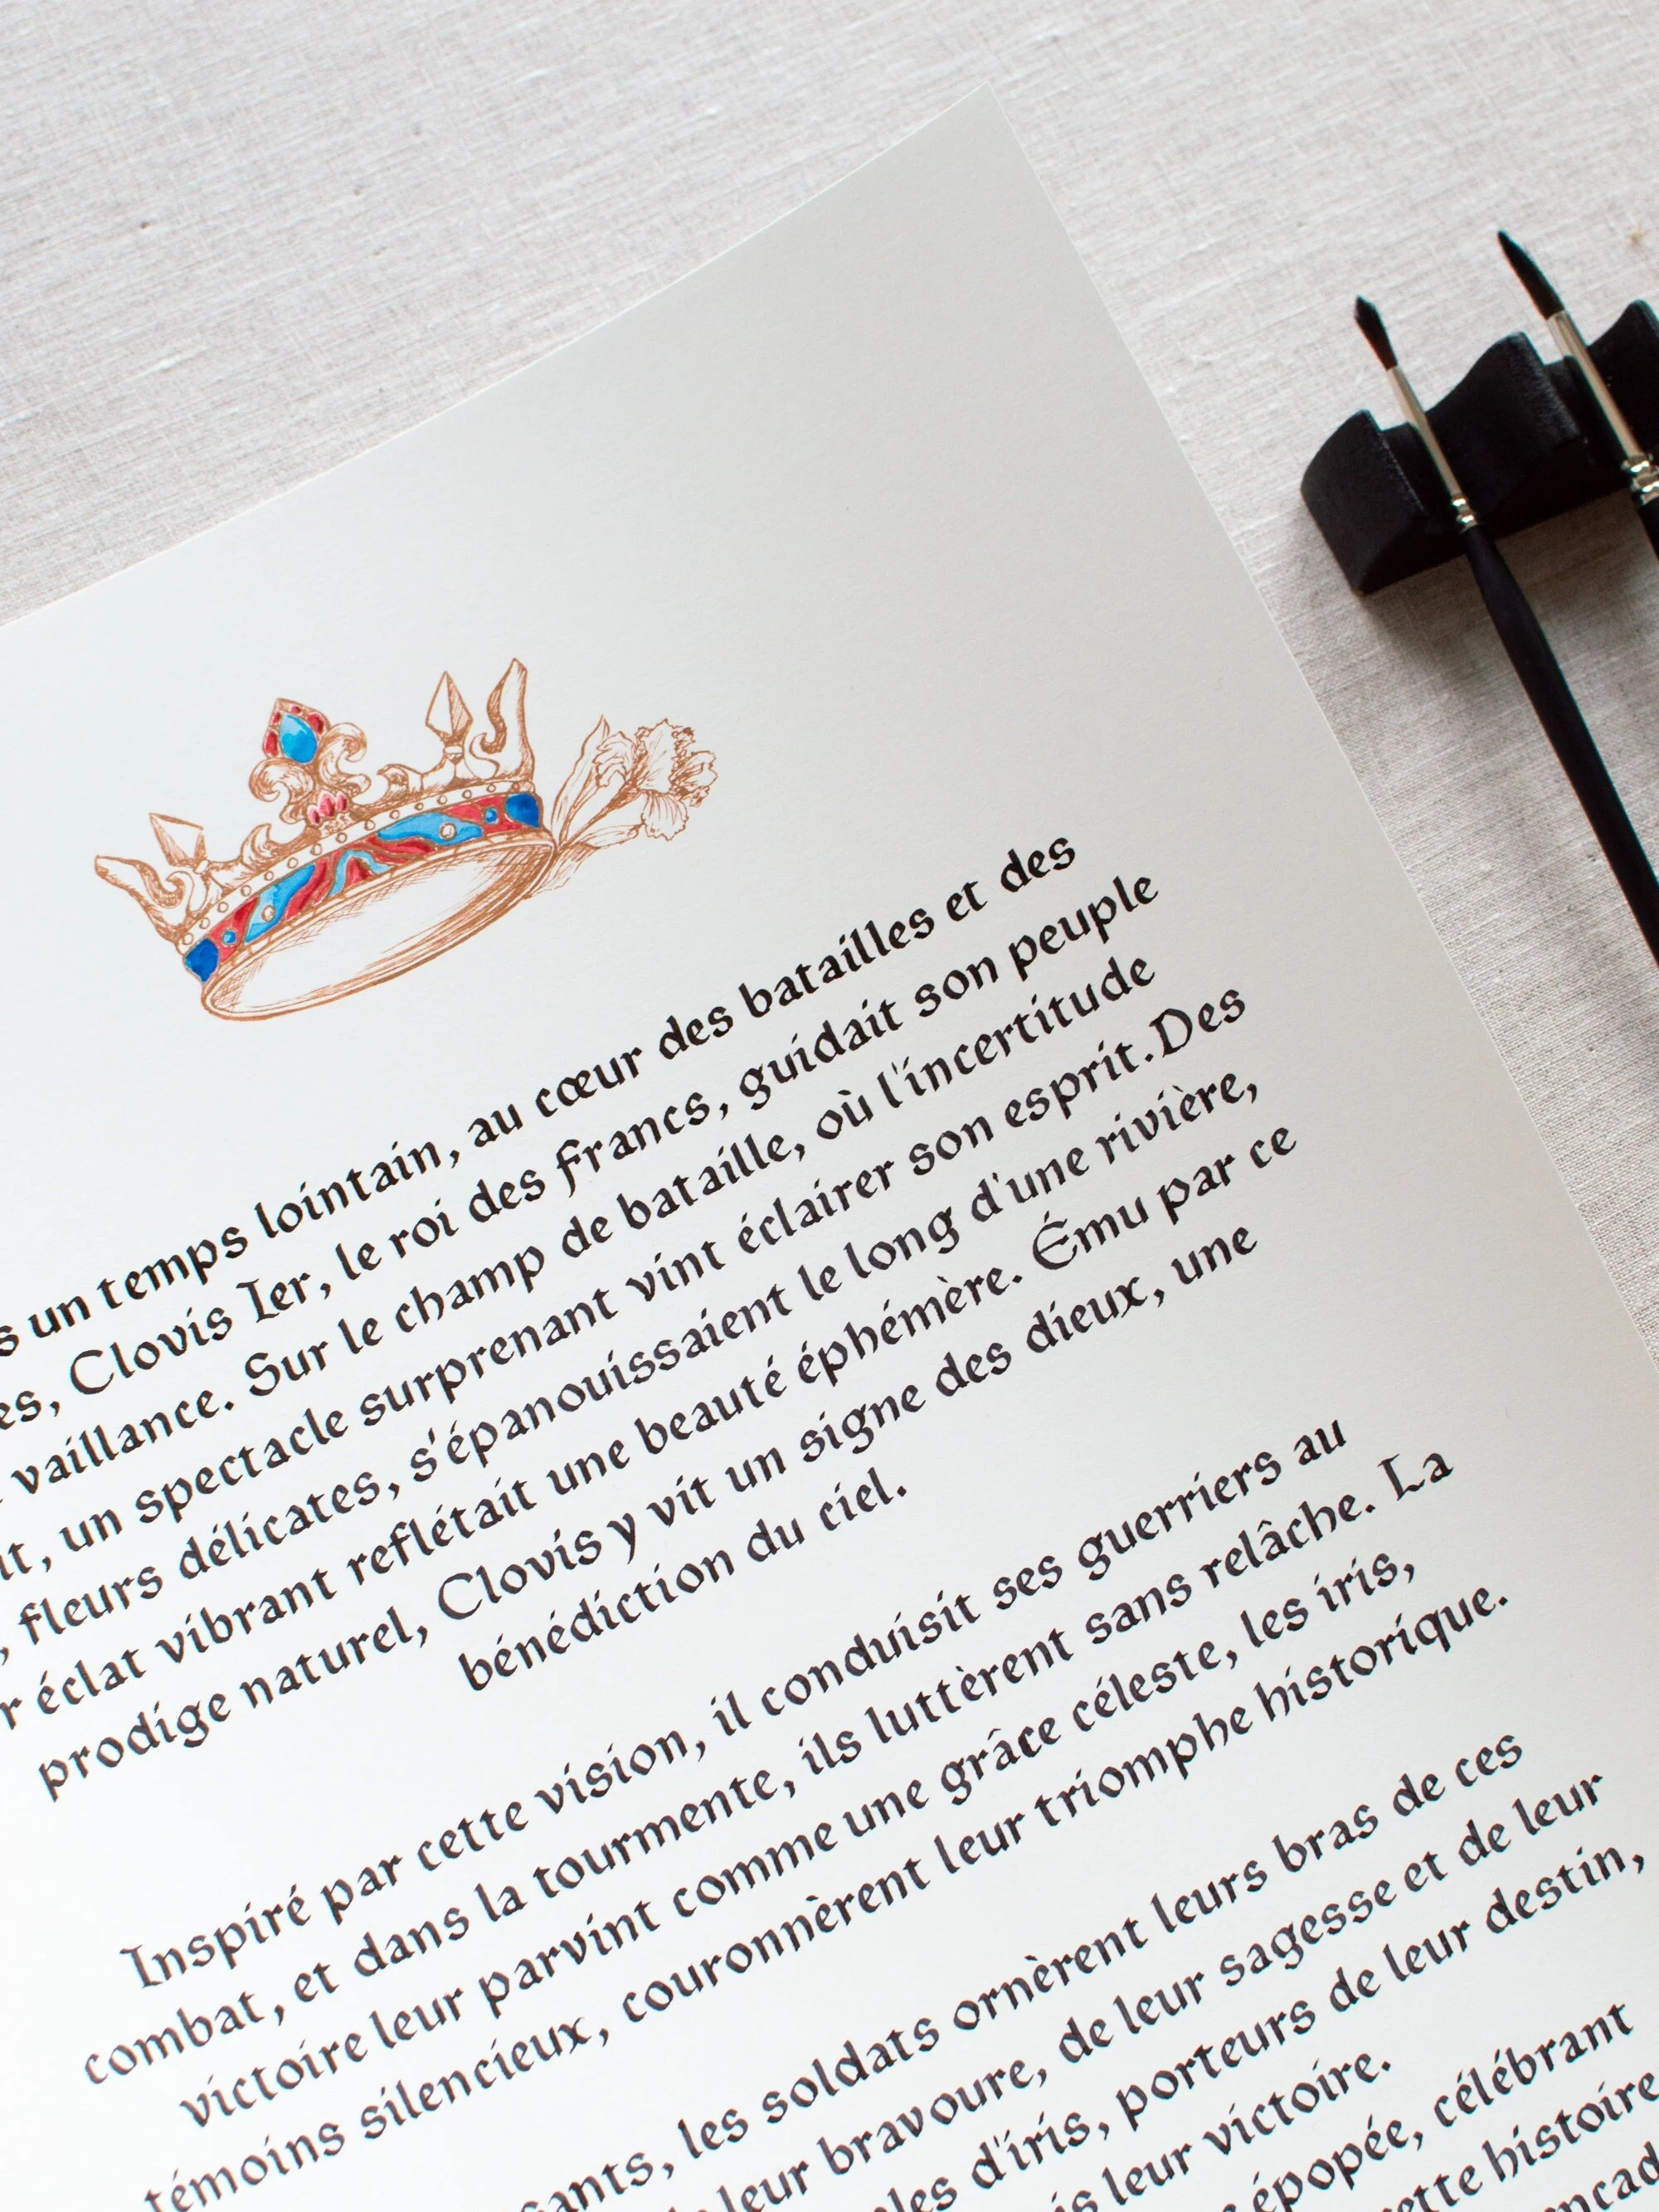 un temps lointain, au cœur des batailles et des
Clovis Ier, le roi des Francs, guidait son peuple
vaillance. Sur le champ de bataille, où l'incertitude
un spectacle surprenant vint éclairer son esprit. Des
fleurs délicates, s'épanouissaient le long d'une rivière,
éclat vibrant reflétait une beauté éphémère. Ému par ce
prodige naturel, Clovis y vit un signe des dieux, une
bénédiction du ciel.
Inspiré par cette vision, il conduisit ses guerriers au
combat, et dans la tourmente, ils luttèrent sans relâche. La
victoire leur parvint comme une grâce céleste, les iris,
témoins silencieux, couronnèrent leur triomphe historique.
les soldats ornèrent leurs bras de ces
leur bravoure, de leur sagesse et de leur
d'iris, porteurs de leur destin,
leur victoire.
épopée, célébrant
histoire